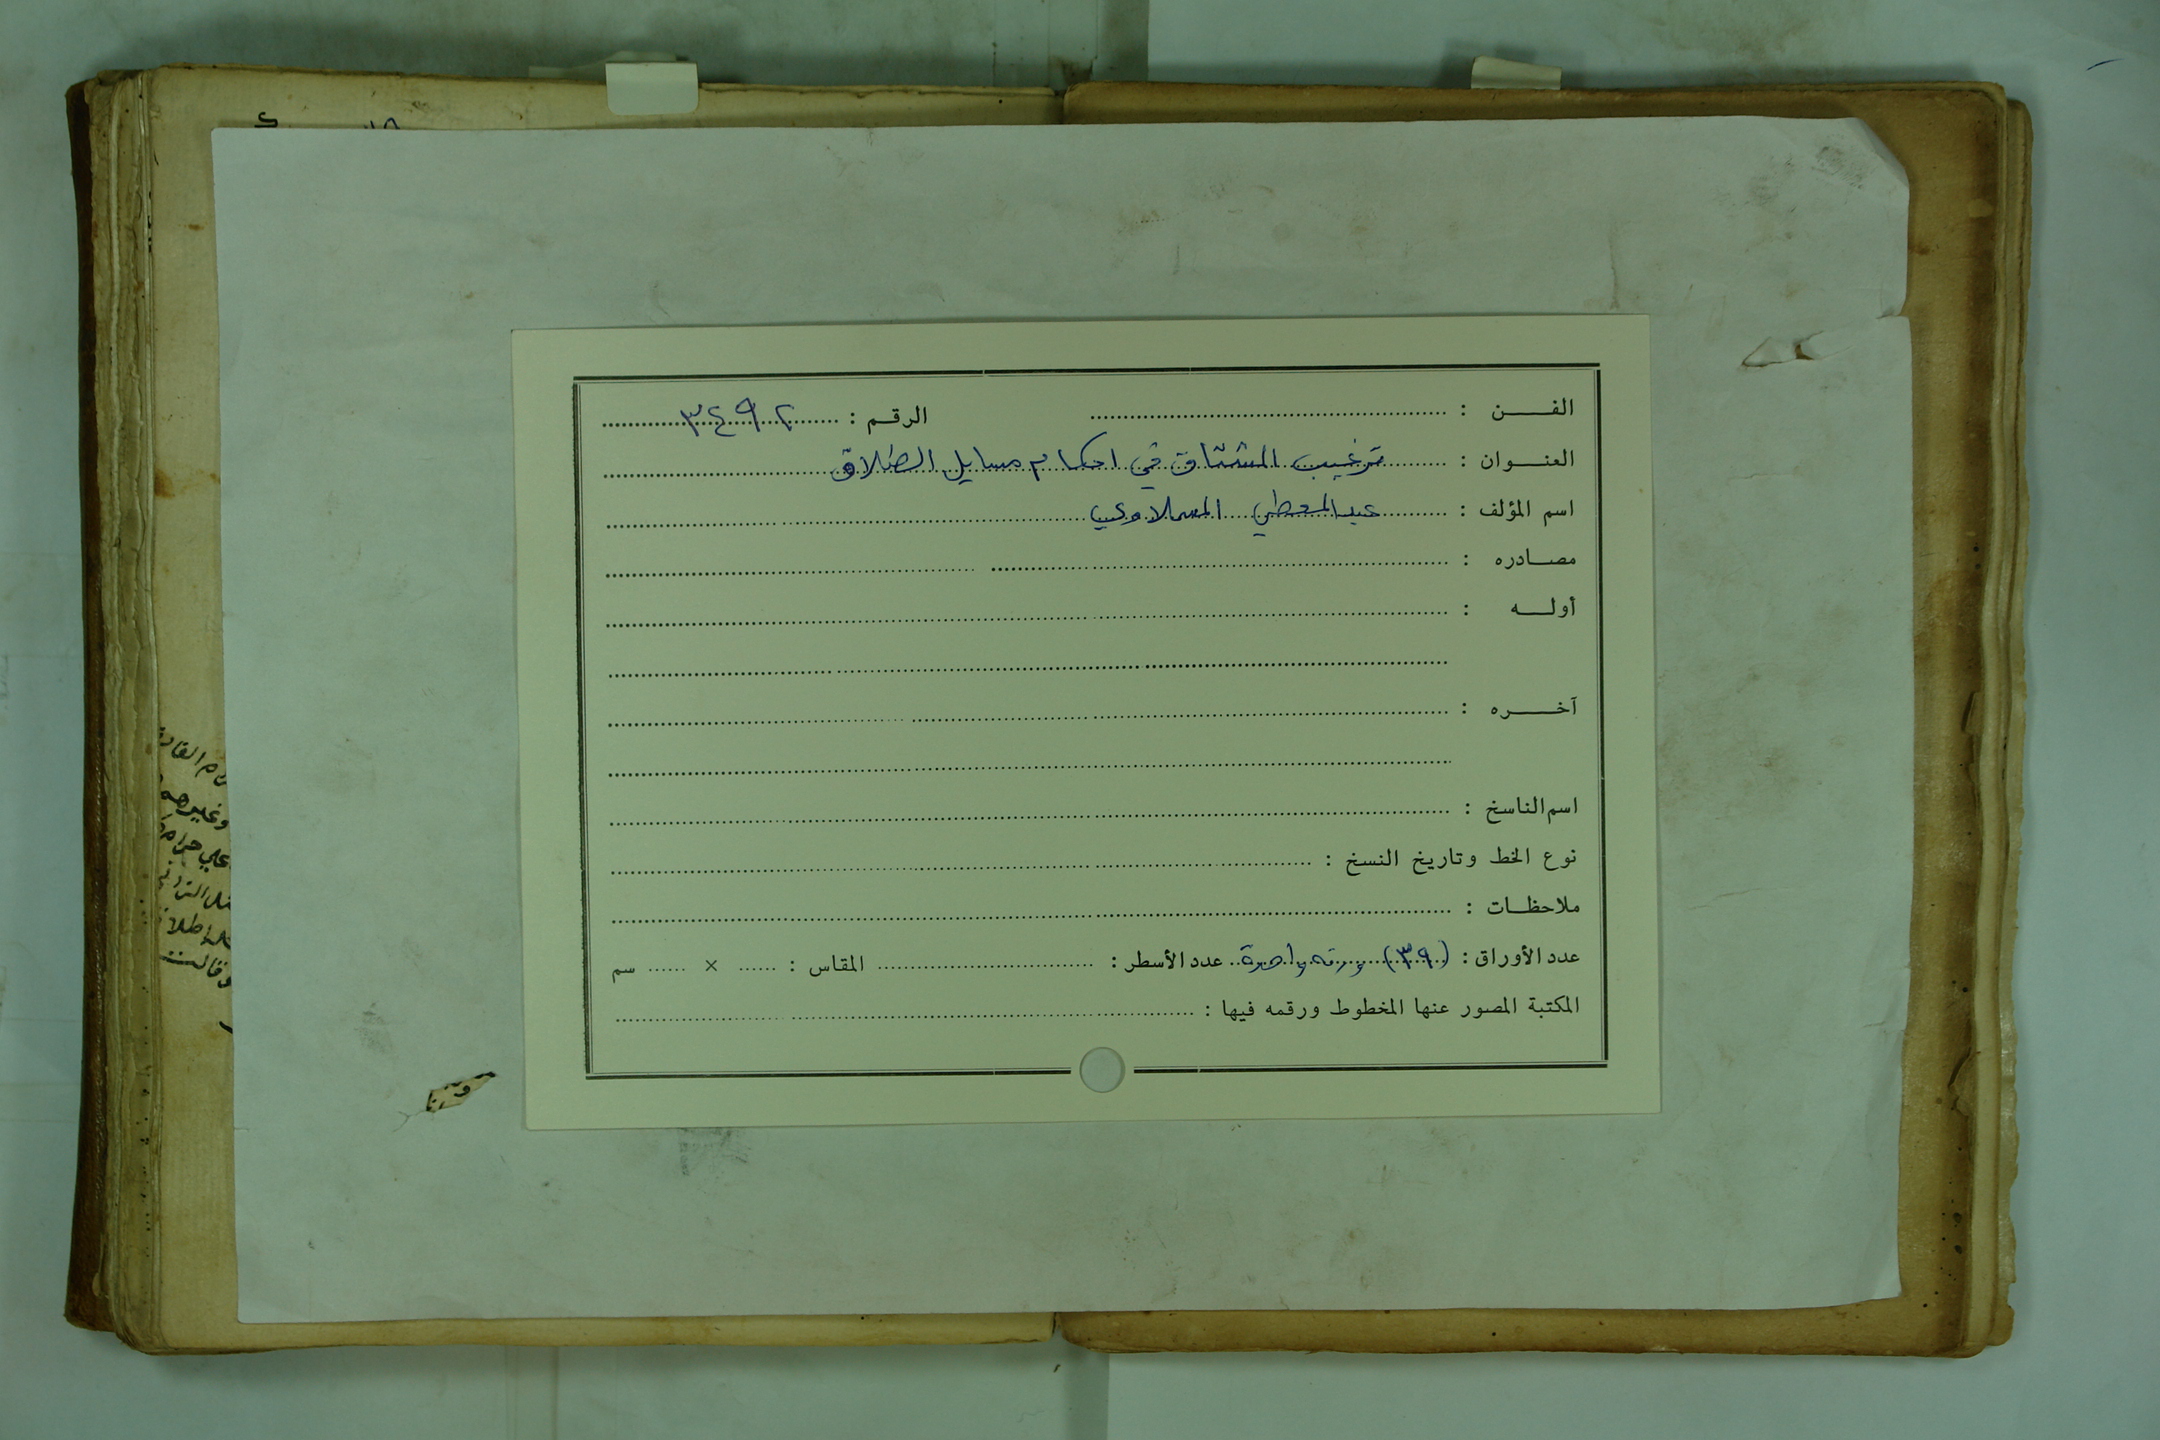 الفـــن : الرقـم : ٣٤٩٢
العنـــوان : ترغيب المشتاق في احكام مسايل الطلاق
اسم المؤلف : عبد المعطي السملاوي
مصــادره :
أولـــه :
آخـــره :
اسم الناسخ :
نوع الخط وتاريخ النسخ :
ملاحظــات :
عدد الأوراق : (٣٩) ورقه واحدة عدد الأسطر : المقاس : × سم
المكتبة المصور عنها المخطوط ورقمه فيها :
وغيرهم
علي حرام
وقالت